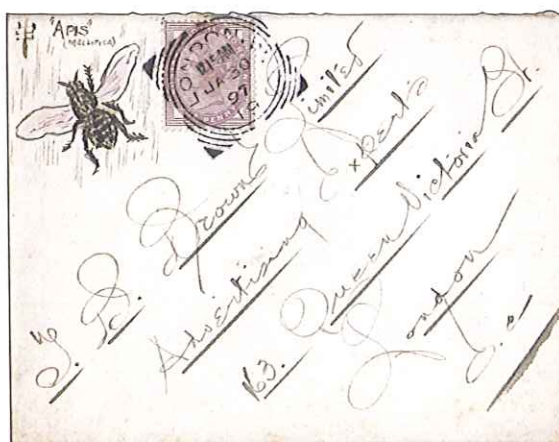 'APIS'
(MELLIFICA)
LONDON.
JA 30
97
T. B. Browne Limited
Advertising Experts
163. Queen Victoria St.
London
E.C